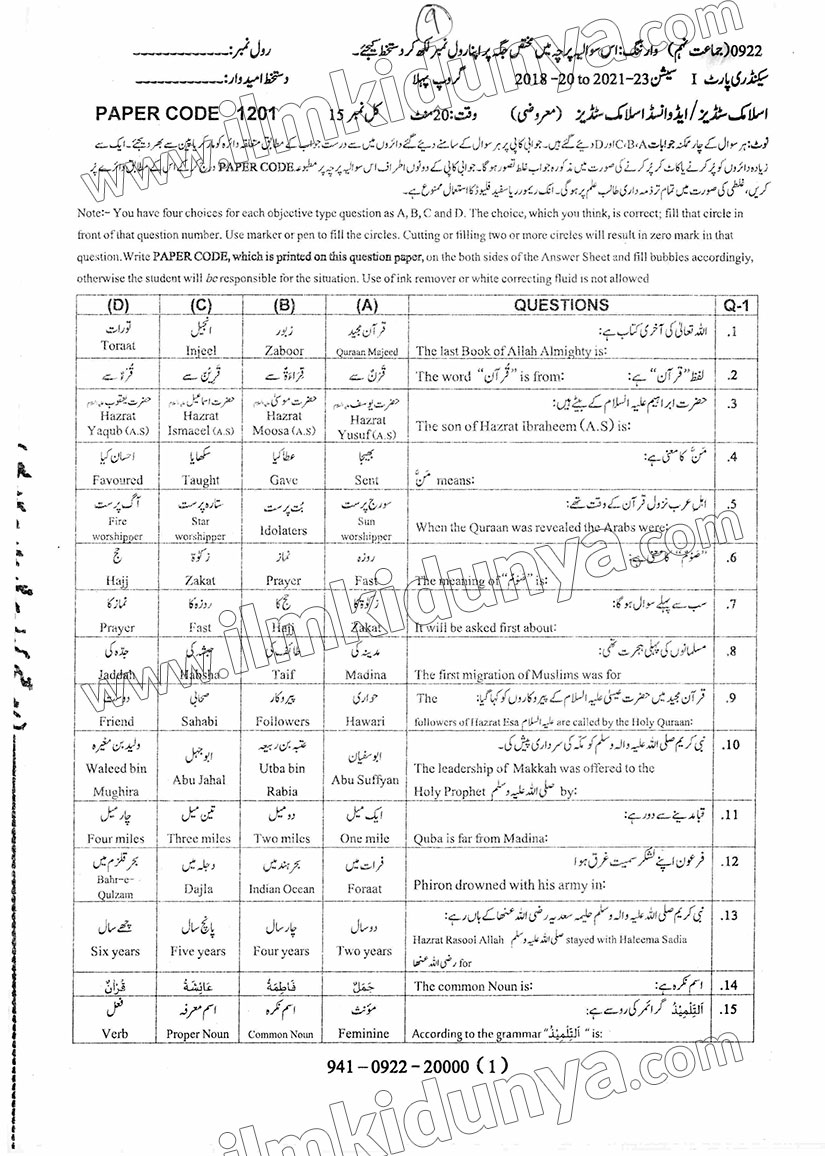 9
0922 (جماعت نہم) وارننگ: اس سوالیہ پرچہ میں مختص جگہ پر اپنا رول نمبر لکھ کر دستخط کیجئے۔ رول نمبر:
سیکنڈری پارٹ I سیشن 2018-20 to 2021-23 گروپ پہلا دستخط امیدوار:
اسلامک سٹڈیز/ایڈوانسڈ اسلامک سٹڈیز (معروضی) وقت:20 منٹ کل نمبر 15 PAPER CODE 1201
نوٹ:ہر سوال کے چار ممکنہ جوابات C،B،A اور D دیئے گئے ہیں۔ جوابی کاپی پر ہر سوال کے سامنے دیئے گئے دائروں میں سے درست جواب کے مطابق متعلقہ دائرہ کو مارکر یا پین سے بھر دیجئے۔ ایک سے
زیادہ دائروں کو پُر کرنے یا کاٹ کر پُر کرنے کی صورت میں مذکورہ جواب غلط تصور ہوگا۔ جوابی کاپی کے دونوں اطراف اس سوالیہ پرچہ پر مطبوعہ PAPER CODE درج کر کے اس کے مطابق دائرے پُر
کریں، غلطی کی صورت میں تمام تر ذمہ داری طالب علم پر ہوگی۔ انک ریموور یا سفید فلیوڈ کا استعمال ممنوع ہے۔
Note:- You have four choices for each objective type question as A, B, C and D. The choice, which you think, is correct; fill that circle in
front of that question number. Use marker or pen to fill the circles. Cutting or filling two or more circles will result in zero mark in that
question.Write PAPER CODE, which is printed on this question paper, on the both sides of the Answer Sheet and fill bubbles accordingly,
otherwise the student will be responsible for the situation. Use of ink remover or white correcting fluid is not allowed
(D) (C) (B) (A) QUESTIONS Q-1
تورات انجیل زبور قرآن مجید اللہ تعالیٰ کی آخری کتاب ہے: .1
Toraat Injeel Zaboor Quraan Majeed The last Book of Allah Almighty is:
قُرْءٌ سے قَرِیْنٌ سے قِرَاءَۃٌ سے قَرْنٌ سے The word "قُرآن" is from: لفظ "قرآن" ہے: .2
حضرت یعقوب حضرت اسماعیل حضرت موسیٰ حضرت یوسف حضرت ابراہیم علیہ السلام کے بیٹے ہیں: .3
Hazrat Hazrat Hazrat Hazrat The son of Hazrat ibraheem (A.S) is:
Yaqub (A.S) Ismaeel (A.S) Moosa (A.S) Yusuf (A.S)
احسان کیا سکھایا عطا کیا بھیجا مَنَّ کا معنی ہے: .4
Favoured Taught Gave Sent مَنَّ means:
آگ پرست ستارہ پرست بت پرست سورج پرست اہل عرب نزول قرآن کے وقت تھے: .5
Fire Star Idolaters Sun When the Quraan was revealed the Arabs were:
worshipper worshipper worshipper
حج زکوٰۃ نماز روزہ "صَوْمٌ" کا معنی ہے: .6
Hajj Zakat Prayer Fast The meaning of "صَوْمٌ" is:
نماز کا روزہ کا حج کا زکوٰۃ کا سب سے پہلے سوال ہوگا: .7
Prayer Fast Hajj Zakat It will be asked first about:
جدہ کی حبشہ کی طائف کی مدینہ کی مسلمانوں کی پہلی ہجرت تھی: .8
Jaddah Habsha Taif Madina The first migration of Muslims was for
دوست صحابی پیروکار حواری The قرآن مجید میں حضرت عیسیٰ علیہ السلام کے پیروکاروں کو کہا گیا: .9
Friend Sahabi Followers Hawari followers of Hazrat Esa علیہ السلام are called by the Holy Quraan:
ولید بن مغیرہ ابوجہل عتبہ بن ربیعہ ابوسفیان نبی کریم صلی اللہ علیہ والہ وسلم کو مکہ کی سرداری پیش کی۔ .10
Waleed bin Abu Jahal Utba bin Abu Suffyan The leadership of Makkah was offered to the
Mughira Rabia Holy Prophet صلی اللہ علیہ وسلم by:
چار میل تین میل دو میل ایک میل قبا مدینے سے دور ہے: .11
Four miles Three miles Two miles One mile Quba is far from Madina:
بحر قلزم میں دجلہ میں بحر ہند میں فرات میں فرعون اپنے لشکر سمیت غرق ہوا .12
Bahr-e-Qulzam Dajla Indian Ocean Foraat Phiron drowned with his army in:
چھے سال پانچ سال چار سال دو سال نبی کریم صلی اللہ علیہ والہ وسلم حلیمہ سعدیہ رضی اللہ عنھا کے ہاں رہے: .13
Six years Five years Four years Two years Hazrat Rasool Allah صلی اللہ علیہ وسلم stayed with Haleema Sadia
رضی اللہ عنھا for
قُرْاٰنٌ عَائِشَۃُ فَاطِمَۃُ جَمَلٌ The common Noun is: اسم نکرہ ہے: .14
فعل اسم معرفہ اسم نکرہ مؤنث اَلتِّلْمِیْذُ گرائمر کی رو سے ہے: .15
Verb Proper Noun Common Noun Feminine According to the grammar "اَلتِّلْمِیْذُ" is:
941-0922-20000 (1)
www.ilmkidunya.com
www.ilmkidunya.com
www.ilmkidunya.com